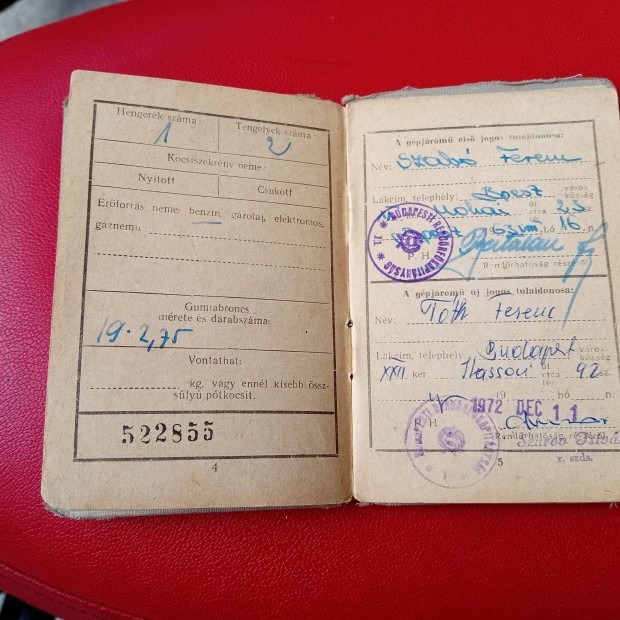 Hengerek száma
Tengelyek száma
1
2
Kocsiszekrény neme
Nyitott
Csukott
Erőforrás neme: benzin, gázolaj, elektromos,
gáznemű
Gumiabroncs
mérete és darabszáma:
19-2,75
Vontathat:
kg, vagy ennél kisebb össz-
súlyú pótkocsit.
522855
4
A gépjármű első jogos tulajdonosa:
Név: Szabó Ferenc
Lakcím, telephely: Bpest város
község
út
utca 23
tér
hó 16 n.
BUDAPESTI RENDŐRFŐKAPITÁNYSÁG
P. H.
Rendőrhatóság részéről
A gépjármű új jogos tulajdonosa:
Név: Tóth Ferenc
Lakcím, telephely Budapest város
község
XXII ker út
utca 92 sz.
tér
19 hó n.
1972 DEC 11
P. H.
Rendőrhatóság részéről
r. szds.
5